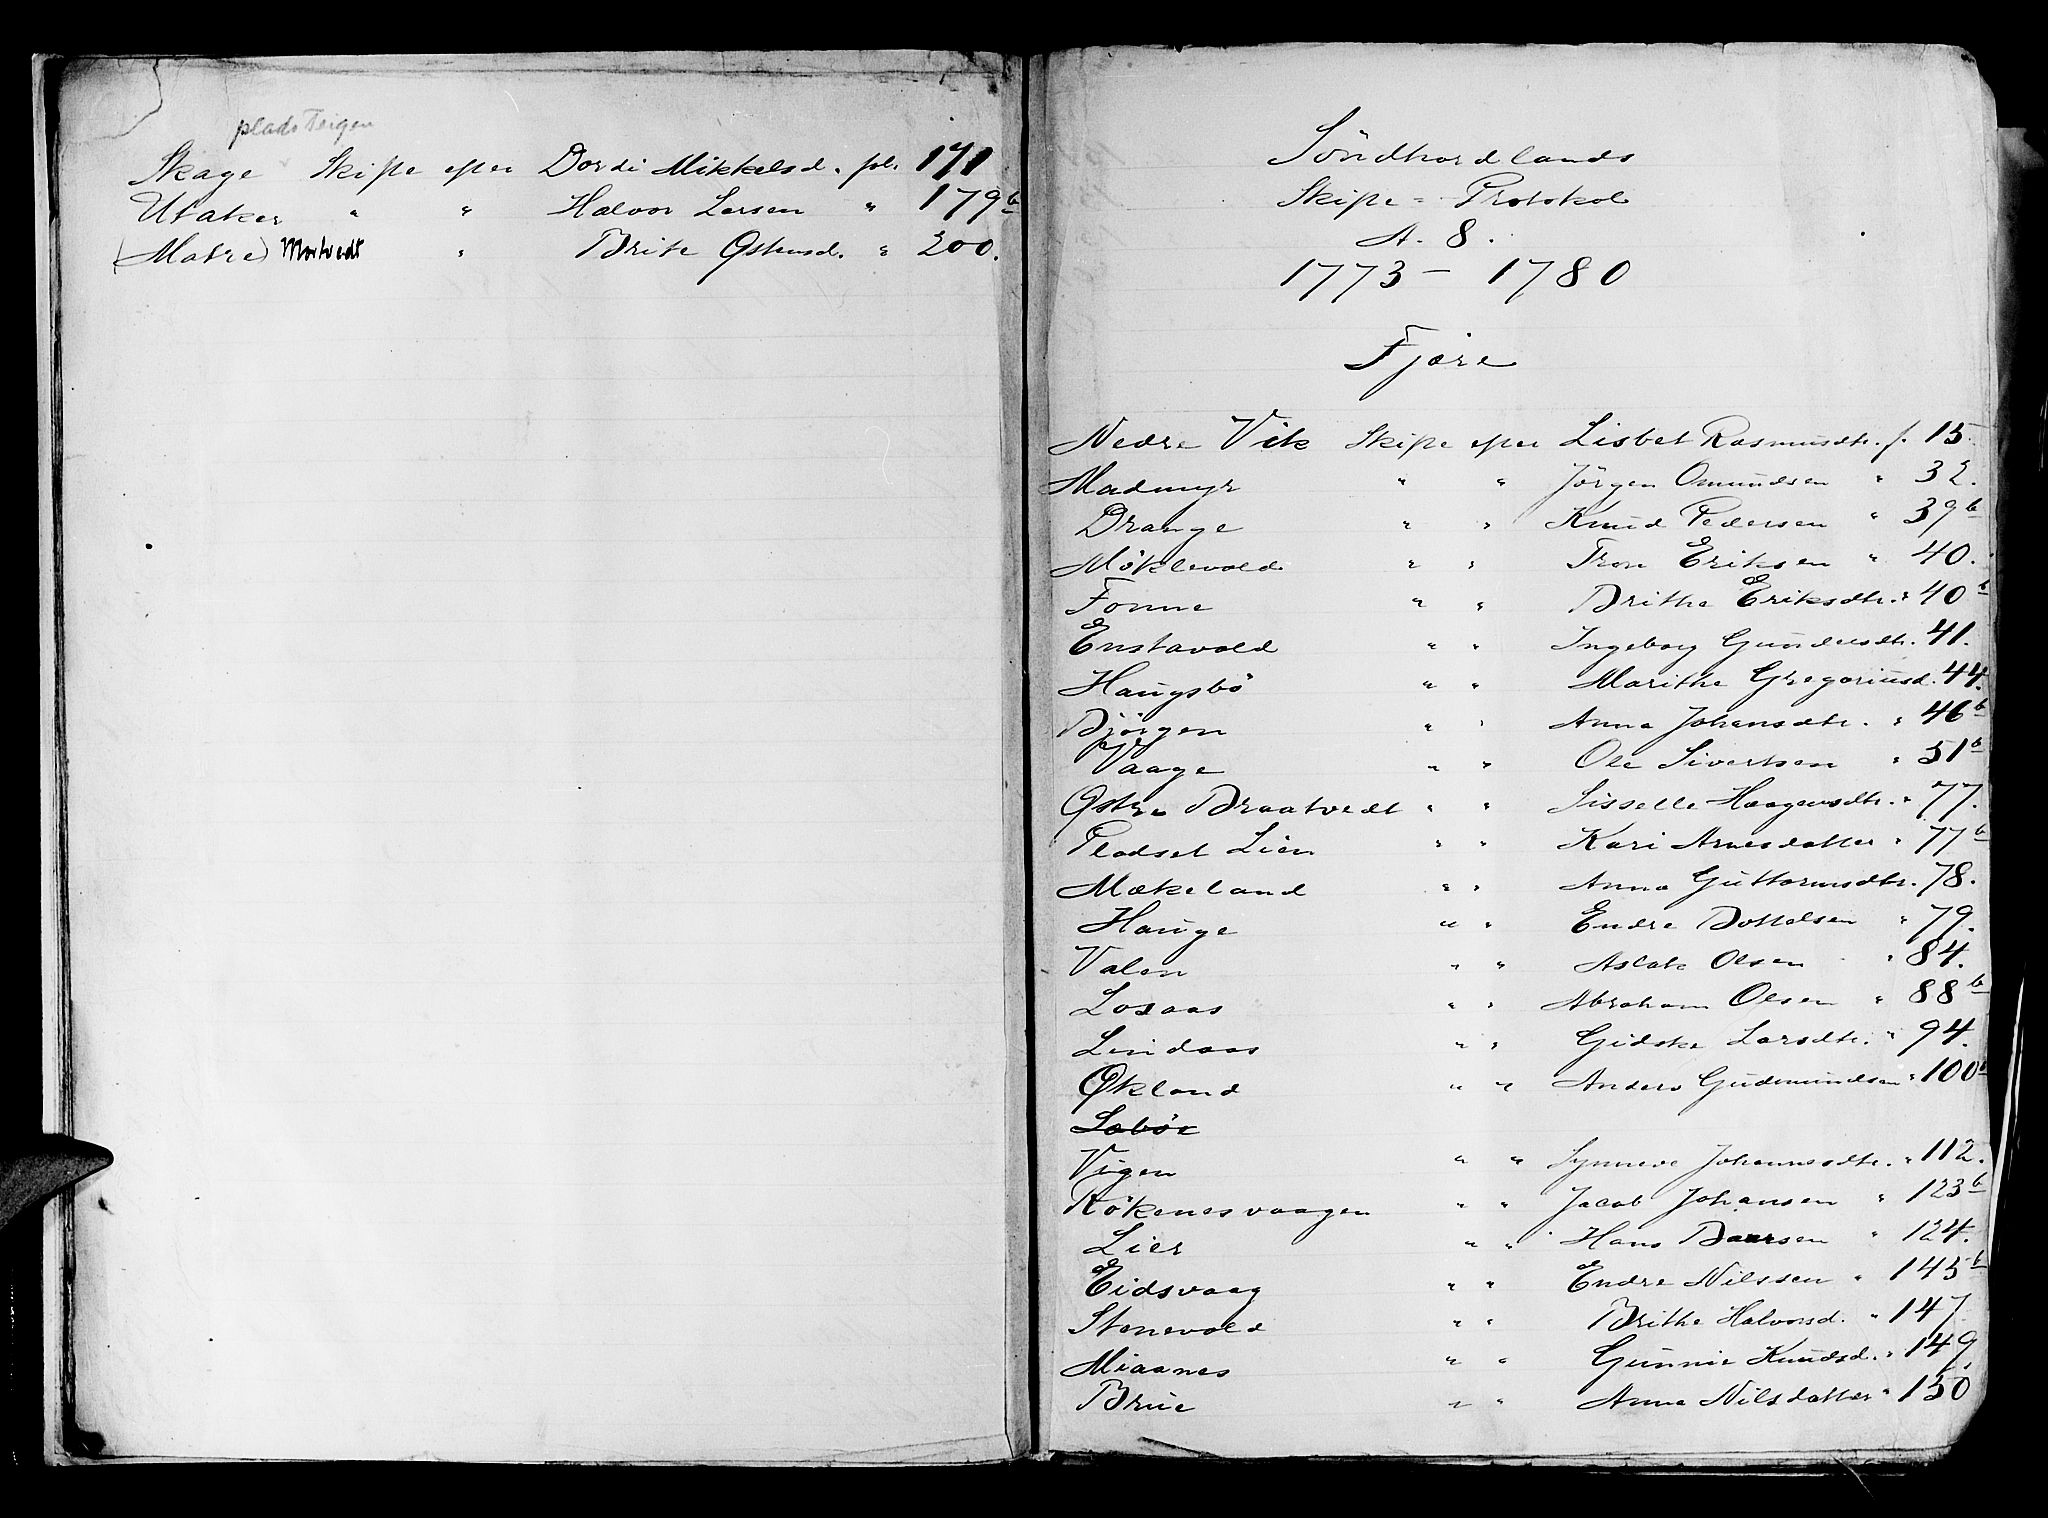 plads Teigen
Skage Skifte efter Dordi Mikkelsd. fol. 171
Utaker " " Halvor Larsen " 179b
(Matre) Mortvedt " Brite Østensd. " 200.
Söndhordlands
Skifte = Protokol
A. 8.
1773 - 1780
Fjære
Nedre Vik Skifte efter Lisbet Rasmusdtr. f. 15
Madmyr " " Jörgen Omundsen " 32.
Drange " " Knud Pedersen " 39b
Möklevold " " Tron Eriksen " 40.
Fonne " " Brithe Eriksdtr. " 40b
Enstavold " " Ingeborg Gundersdtr. 41.
Haugsbö " " Marithe Gregoriusd. 44.
Björgen " " Anna Johansdtr. " 46b
Vaage " " Ole Sivertsen " 51b
Østre Braatvedt " " Sisselle Haagensdtr. " 77.
Pladset Lien " " Kari Arnesdatter " 77b
Mækeland " " Anna Guttormsdtr. 78.
Hauge " " Endre Bottolsen " 79.
Valen " " Aslak Olsen " 84.
Losaas " " Abraham Olsen " 88b
Lindaas " " Gidske Larsdtr. " 94.
Økland " " Anders Gudmundsen " 100b
Læbör
Vigen " " Synneve Johannesdtr. " 112.
Rökenesvaagen " " Jacob Johansen " 123b
Lier " " Hans Baarsen " 124.
Eidsvaag " " Endre Nilssen " 145b
Stenevold " " Brithe Halvorsd. " 147.
Miaanes " " Gunnie Knudsd. " 149.
Brue " " Anna Nilsdatter " 150